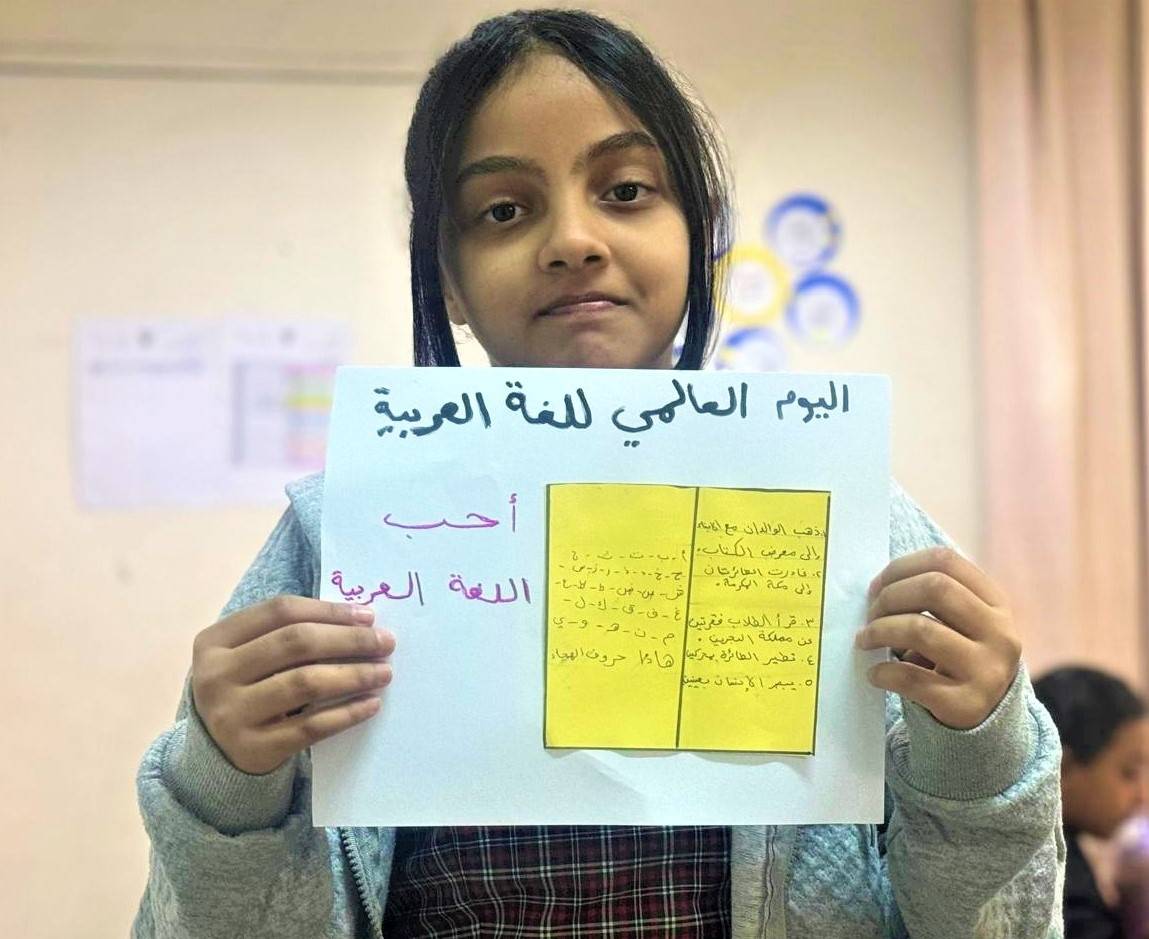 اليوم العالمي للغة العربية
أحب
اللغة العربية
ذهب الوالدان مع
إلى معرض الكتاب.
٢. غادرت الطائرتان
إلى مكة المكرمة.
٣. قرأ الطلاب فقرتين
عن مملكة البحرين.
٤. تطير الطائرة
٥. يبصر الإنسان بعينين
أ - ب - ت - ث - ج
ح - خ - د - ذ - ر - ز - س -
ش - ص - ض - ط - ظ - ع -
غ - ف - ق - ك - ل -
م - ن - هـ - و - ي
حروف الهجاء